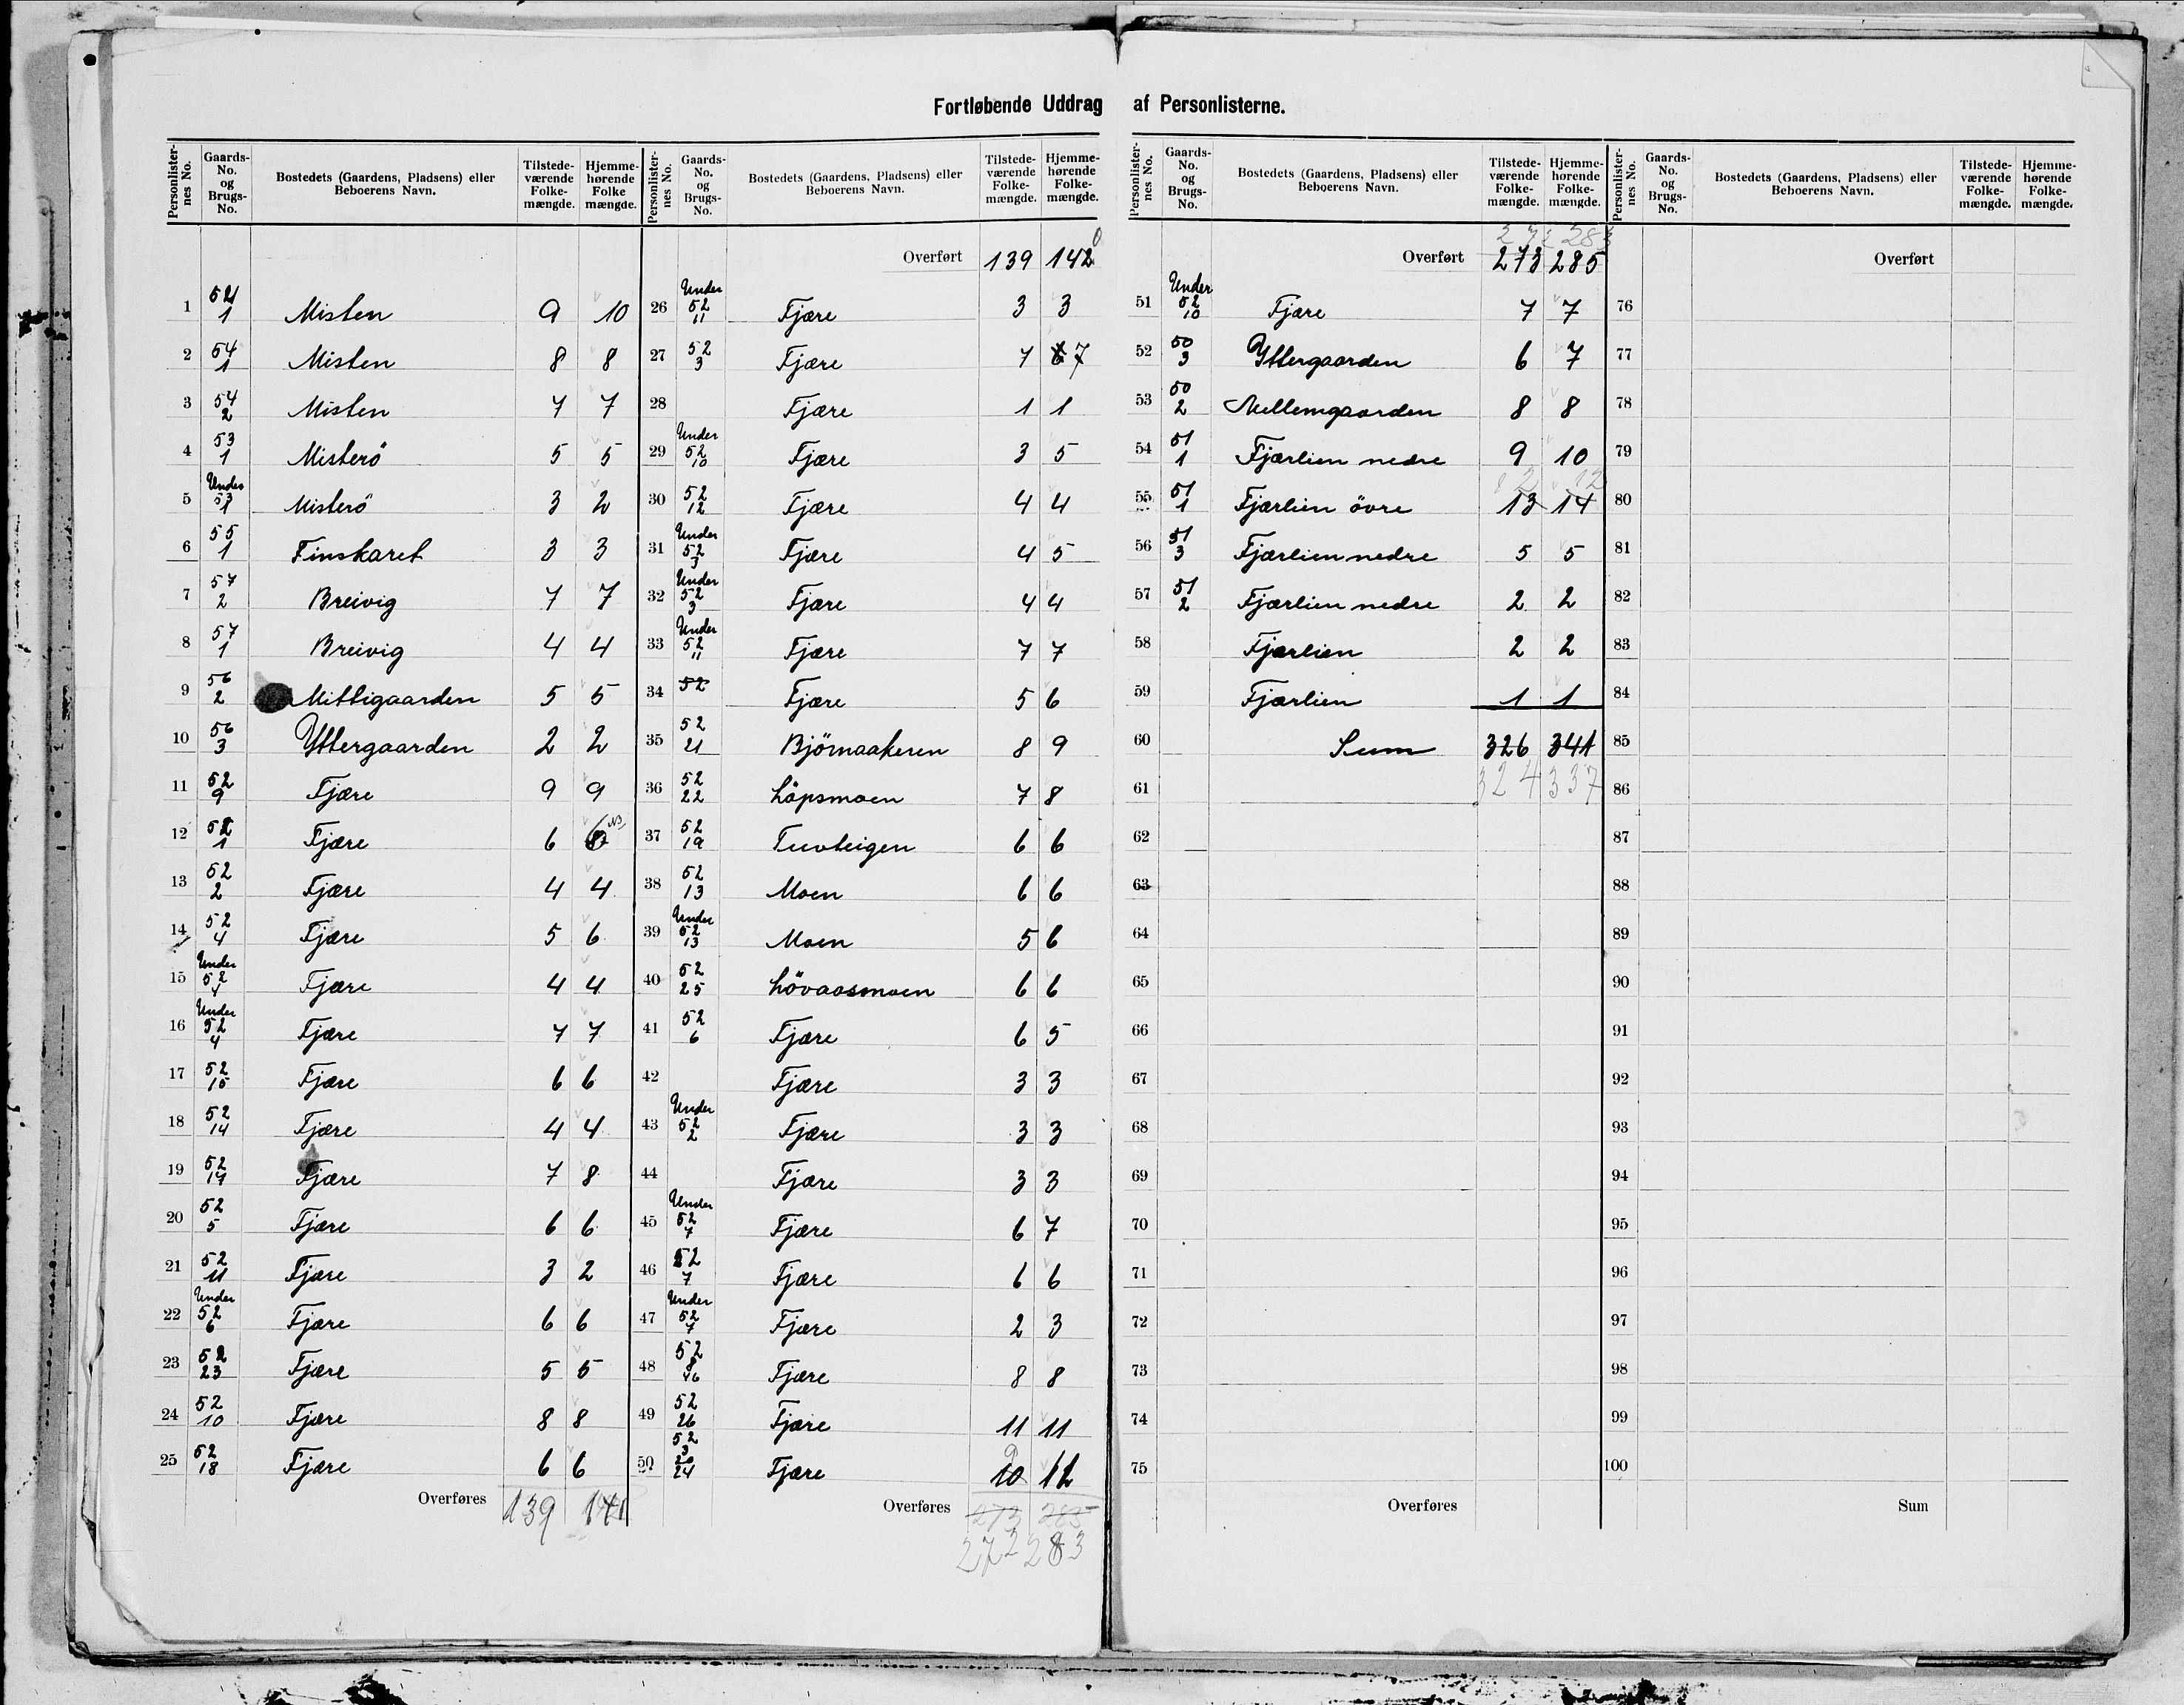 Fortløbende Uddrag af Personlisterne.
Personlister-nes No. | Gaards-No. og Brugs-No. | Bostedets (Gaardens, Pladsens) eller Beboerens Navn. | Tilstede-værende Folke-mængde. | Hjemme-hørende Folke mængde.
1 | 54/1 | Misten | 9 | 10
2 | 54/1 | Misten | 8 | 8
3 | 54/2 | Misten | 7 | 7
4 | 53/1 | Misterö | 5 | 5
5 | Under 53/1 | Misterö | 3 | 2
6 | 55/1 | Finskaret | 3 | 3
7 | 57/2 | Breivig | 7 | 7
8 | 57/1 | Breivig | 4 | 4
9 | 56/2 | Mittigaarden | 5 | 5
10 | 56/3 | Yttergaarden | 2 | 2
11 | 52/9 | Fjære | 9 | 9
12 | 52/1 | Fjære | 6 | 6
13 | 52/2 | Fjære | 4 | 4
14 | 52/4 | Fjære | 5 | 6
15 | Under 52/4 | Fjære | 4 | 4
16 | Under 52/4 | Fjære | 7 | 7
17 | 52/15 | Fjære | 6 | 6
18 | 52/14 | Fjære | 4 | 4
19 | 52/17 | Fjære | 7 | 8
20 | 52/5 | Fjære | 6 | 6
21 | 52/11 | Fjære | 3 | 2
22 | Under 52/6 | Fjære | 6 | 6
23 | 52/23 | Fjære | 5 | 5
24 | 52/10 | Fjære | 8 | 8
25 | 52/18 | Fjære | 6 | 6
Overføres | 139 | 141
Personlister-nes No. | Gaards-No. og Brugs-No. | Bostedets (Gaardens, Pladsens) eller Beboerens Navn. | Tilstede-værende Folke-mængde. | Hjemme-hørende Folke-mængde.
Overført | 139 | 142
26 | Under 52/11 | Fjære | 3 | 3
27 | 52/3 | Fjære | 7 | 6 7
28 | Fjære | 1 | 1
29 | Under 52/10 | Fjære | 3 | 5
30 | 52/12 | Fjære | 4 | 4
31 | Under 52/3 | Fjære | 4 | 5
32 | Under 52/3 | Fjære | 4 | 4
33 | Under 52/11 | Fjære | 7 | 7
34 | 52 | Fjære | 5 | 6
35 | 52/21 | Björnaakeren | 8 | 9
36 | 52/22 | Löpsmoen | 7 | 8
37 | 52/19 | Tuvteigen | 6 | 6
38 | 52/13 | Moen | 6 | 6
39 | Under 52/13 | Moen | 5 | 6
40 | 52/25 | Lövaasmoen | 6 | 6
41 | 52/6 | Fjære | 6 | 5
42 | Fjære | 3 | 3
43 | Under 52/2 | Fjære | 3 | 3
44 | Fjære | 3 | 3
45 | Under 52/7 | Fjære | 6 | 7
46 | 52/7 | Fjære | 6 | 6
47 | Under 52/7 | Fjære | 2 | 3
48 | 52/8/16 | Fjære | 8 | 8
49 | 52/26 | Fjære | 11 | 11
50 | 52/3/20/24 | Fjære | 9 10 | 12
Overføres | 273 | 285
272 283
Personlister-nes No. | Gaards-No. og Brugs-No. | Bostedets (Gaardens, Pladsens) eller Beboerens Navn. | Tilstede-værende Folke-mængde. | Hjemme-hørende Folke-mængde.
272 283
Overført | 273 | 285
51 | Under 52/10 | Fjære | 7 | 7
52 | 50/3 | Yttergaarden | 6 | 7
53 | 50/2 | Mellemgaarden | 8 | 8
54 | 51/1 | Fjærlien nedre | 9 | 10
12 12
55 | 51/1 | Fjærlien övre | 13 | 14
56 | 51/3 | Fjærlien nedre | 5 | 5
57 | 51/2 | Fjærlien nedre | 2 | 2
58 | Fjærlien | 2 | 2
59 | Fjærlien | 1 | 1
60 | Sum | 326 | 341
61 | 324 | 337
62
63
64
65
66
67
68
69
70
71
72
73
74
75
Overføres
Personlister-nes No. | Gaards-No. og Brugs-No. | Bostedets (Gaardens, Pladsens) eller Beboerens Navn. | Tilstede-værende Folke-mængde. | Hjemme-hørende Folke-mængde.
Overført
76
77
78
79
80
81
82
83
84
85
86
87
88
89
90
91
92
93
94
95
96
97
98
99
100
Sum